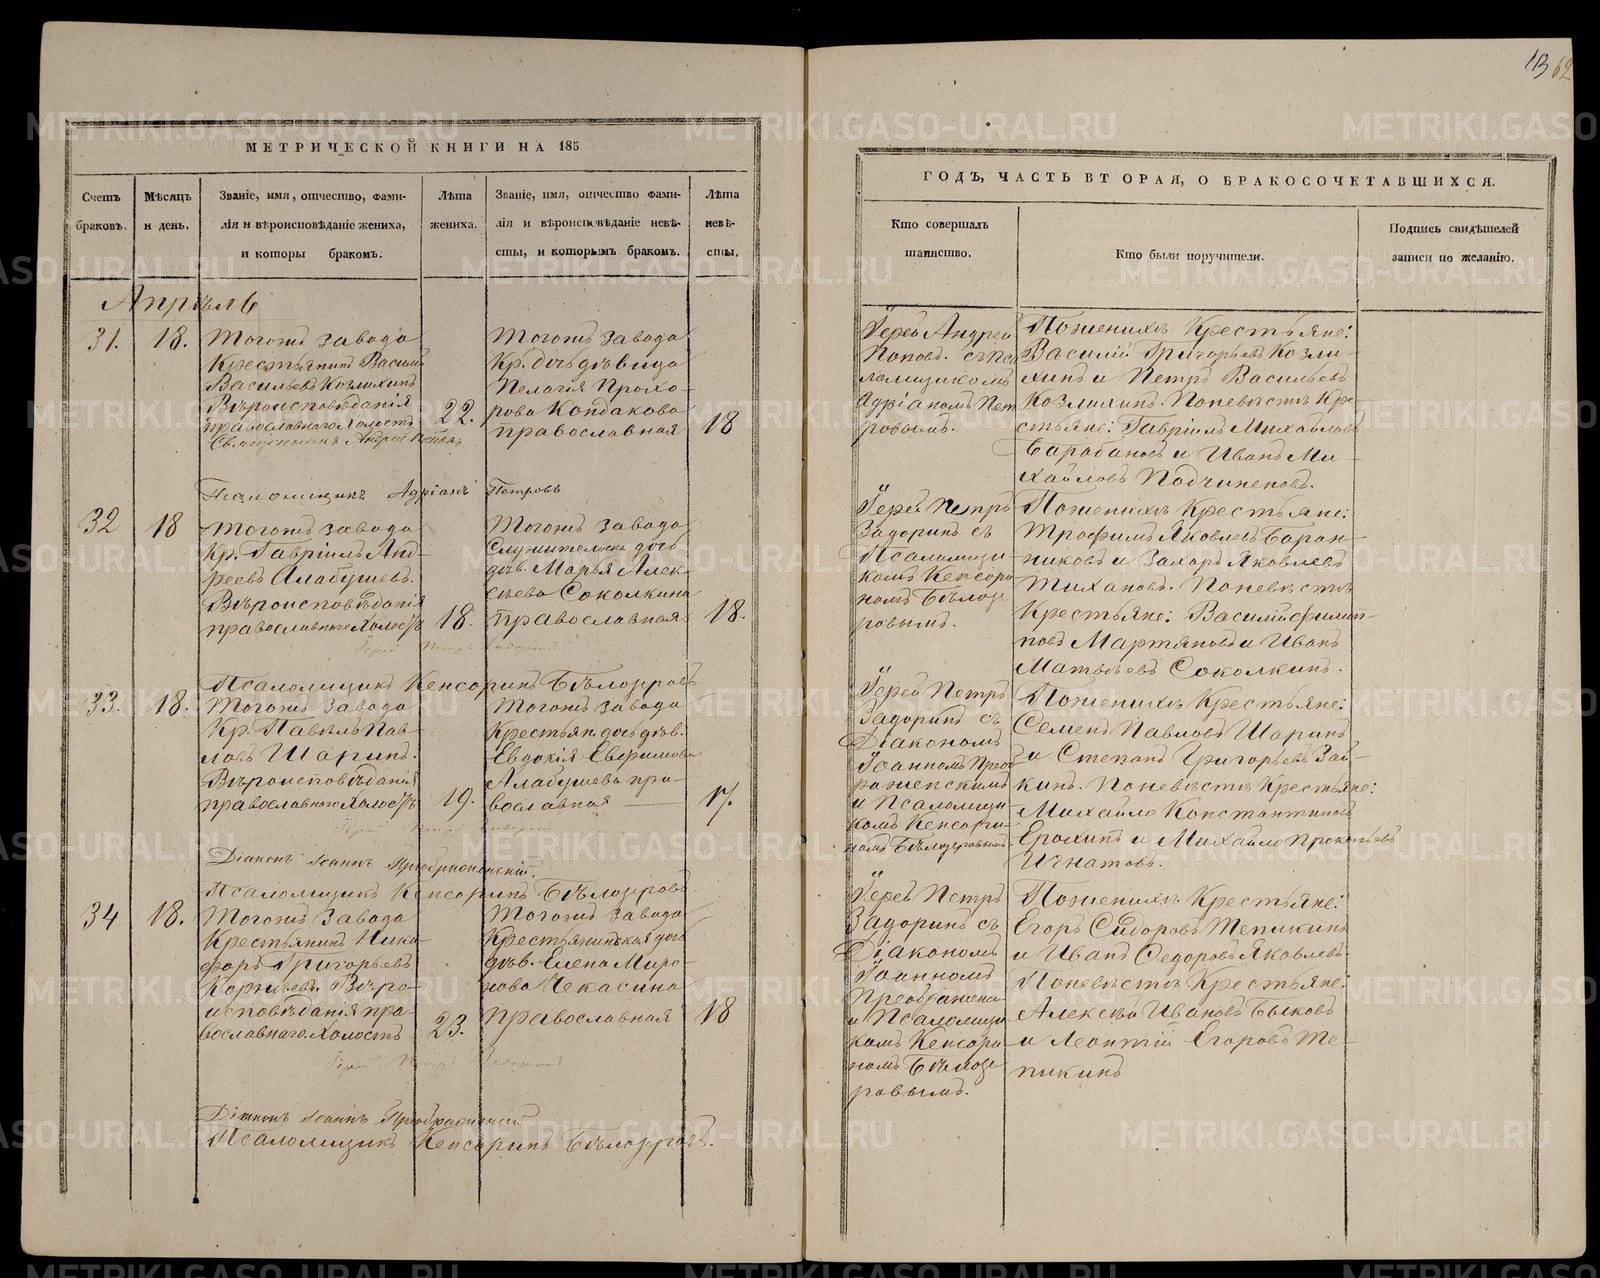 МЕТРИЧЕСКОЙ КНИГИ НА 185
Счетъ браковъ.
Мѣсяцъ и день.
Званіе, имя, отчество, фами-
лія и вѣроисповѣданіе жениха,
и которы бракомъ.
Лѣта жениха.
Званіе, имя, отчество фами-
лія и вѣроисповѣданіе невѣ-
сты, и которымъ бракомъ.
Лѣта невѣ-
сты.
Апрѣль
31.
18.
Тогожъ завода
Крестьянинъ Васил
Васильевъ Козлихинъ
Вѣроисповѣданія
православнаго Холостъ
22.
Тогожъ завода
Кр. дочь дѣвица
Пелагія Прохо-
рова Кондакова
православная
18
Священникъ Андрей Поповъ
Псаломщикъ Адріанъ Петровъ
32
18
Тогожъ завода
Кр. Гавріилъ Анд-
реевъ Алабушевъ.
Вѣроисповѣданія
православнаго Холостъ
18.
Тогожъ завода
Служительска дочь
дѣв. Марья Алек-
сѣева Соколкина
православная
18.
Іерей Петръ Задоринъ
Псаломщикъ Кенсоринъ Бѣлозеровъ
33.
18.
Тогожъ завода
Кр. Павелъ Пав-
ловъ Шаринъ.
Вѣроисповѣданія
православнаго Холостъ
19.
Тогожъ завода
Крестьян. дочь дѣв.
Евдокія Евфимова
Алабушева пра-
вославная
17.
Іерей Петръ Задоринъ
Діаконъ Іоаннъ Преображенскій.
Псаломщикъ Кенсоринъ Бѣлозеровъ
34
18.
Тогожъ завода
Крестьянинъ Ники-
форъ Григорьевъ
Корнѣевъ. Вѣро-
исповѣданія пра-
вославнаго. Холостъ
23.
Тогожъ завода
Крестьянинская дочь
дѣв. Елена Миро-
нова Чекасина
православная
18
Іерей Петръ Задоринъ
Діаконъ Іоаннъ Преображенскій
Псаломщикъ Кенсоринъ Бѣлозеровъ.
ГОДЪ, ЧАСТЬ ВТОРАЯ, О БРАКОСОЧЕТАВШИХСЯ.
Кто совершалъ
таинство.
Кто были поручители.
Подпись свидѣтелей
записи по желанію.
Іерей Андрей
Поповъ. съ Пса
ломщикомъ
Адріаномъ Пет
ровымъ.
По женихѣ Крестьяне:
Василій Григорьевъ Козли-
хинъ и Петръ Васильевъ
Козлихинъ. По невѣстѣ Кре-
стьяне: Гавріилъ Михайловъ
Барабановъ и Иванъ Ми-
хайловъ Подчиненовъ.
Іерей Петръ
Задоринъ съ
Псаломщи-
комъ Кенсори
номъ Бѣлозе
ровымъ.
По женихѣ Крестьяне:
Трофимъ Яковлевъ Баран-
никовъ и Захаръ Яковлевъ
Тихановъ. По невѣстѣ
Крестьяне: Василій Филип-
повъ Мартяновъ и Иванъ
Матвѣевъ Соколкинъ.
Іерей Петръ
Задоринъ съ
Діакономъ
Іоанномъ Преоб
раженскимъ
и Псаломщи
комъ Кенсори-
номъ Бѣлозеровымъ
По женихѣ Крестьяне:
Семенъ Павловъ Шаринъ
и Степанъ Григорьевъ Зай-
кинъ. По невѣстѣ Крестьяне:
Михайло Константиновъ
Ерохинъ и Михайло Прокопьевъ
Игнатовъ.
Іерей Петръ
Задоринъ съ
Діакономъ
Іоанномъ
Преображенс
и Псаломщи
комъ Кенсори
номъ Бѣлозе
ровымъ.
По женихѣ Крестьяне:
Егоръ Сидоровъ Тепикинъ
и Иванъ Ѳедоровъ Яковлевъ.
По невѣстѣ Крестьяне:
Алексѣй Ивановъ Быковъ
и Леонтій Егоровъ Те-
пикинъ